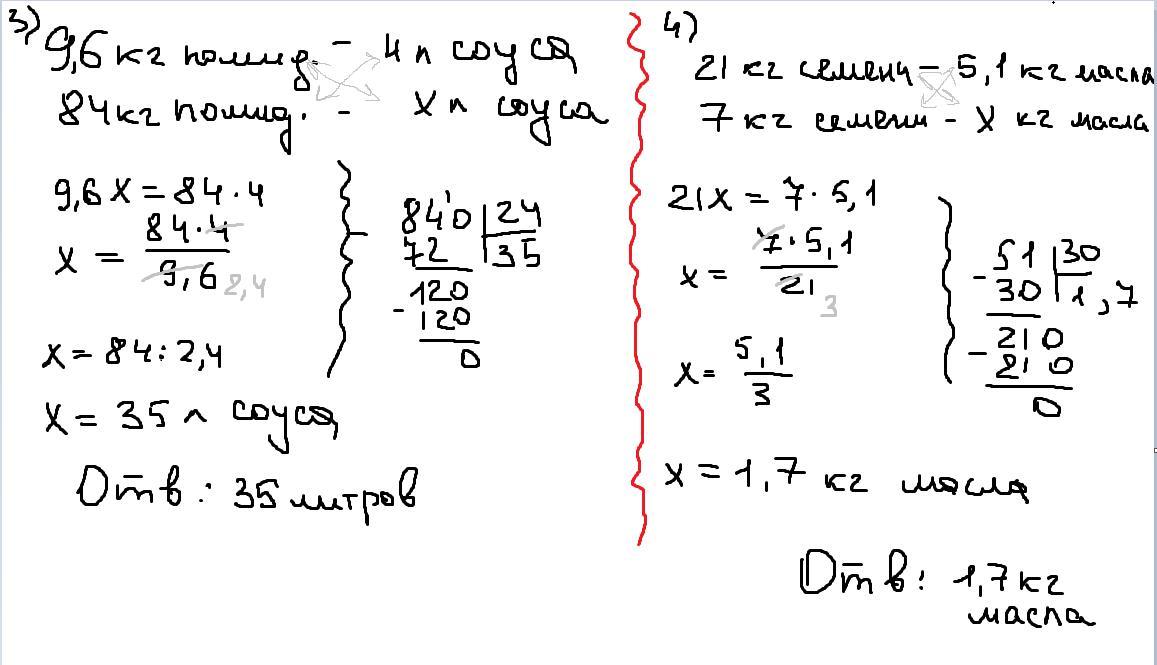 3)
9,6 кг помид. - 4 л соуса
84 кг помид. - х л соуса
9,6 х = 84 · 4
х = 84·4 / 9,6 2,4
х = 84 : 2,4
х = 35 л соуса
Отв : 35 литров
840 | 24
72 35
120
- 120
0
4)
21 кг семени - 5,1 кг масла
7 кг семени - х кг масла
21х = 7 · 5,1
х = 7·5,1 / 21 3
х = 5,1 / 3
х = 1,7 кг масла
51 | 30
- 30 1,7
210
- 210
0
Отв : 1,7 кг
масла